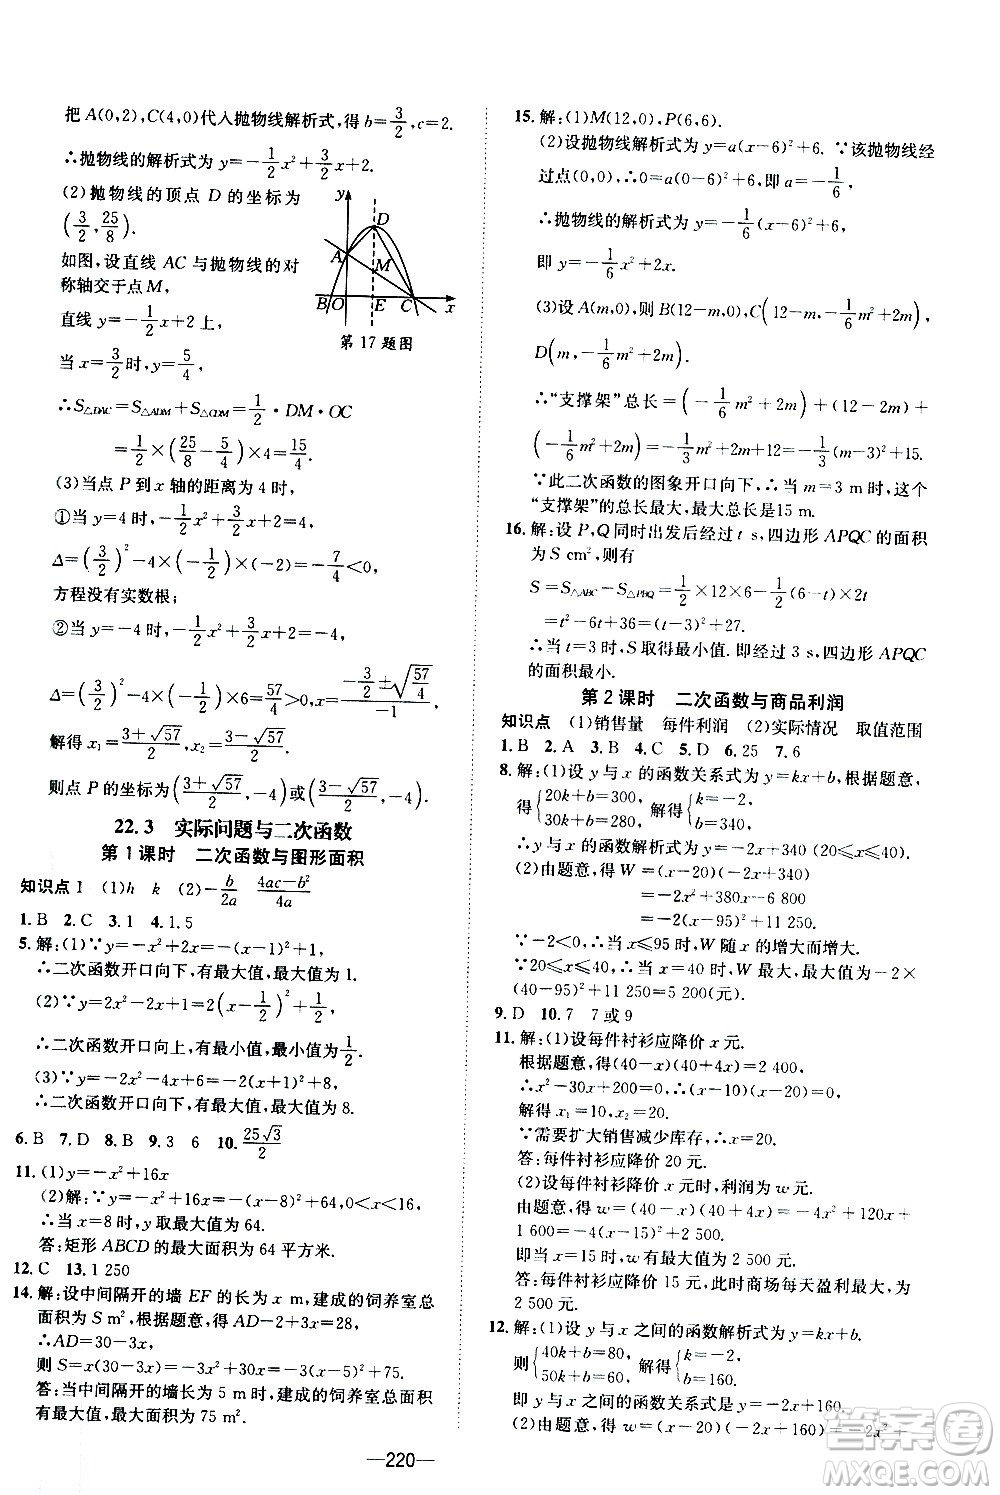 把 A(0,2),C(4,0)代入抛物线解析式,得 b=3/2,c=2.
∴抛物线的解析式为 y=-1/2x²+3/2x+2.
(2)抛物线的顶点 D 的坐标为
(3/2,25/8).
如图,设直线 AC 与抛物线的对
称轴交于点 M,
直线 y=-1/2x+2 上,
当 x=3/2时,y=5/4.
y D A M B O E C x
第 17 题图
∴S△DAC=S△ADM+S△CDM=1/2·DM·OC
=1/2×(25/8-5/4)×4=15/4.
(3)当点 P 到 x 轴的距离为 4 时,
①当 y=4 时,-1/2x²+3/2x+2=4,
Δ=(3/2)²-4×(-1/2)×(-2)=-7/4<0,
方程没有实数根;
②当 y=-4 时,-1/2x²+3/2x+2=-4,
Δ=(3/2)²-4×(-1/2)×6=57/4>0,x=(-3/2±√(57/4))/-1,
解得 x₁=(3+√57)/2,x₂=(3-√57)/2.
则点 P 的坐标为((3+√57)/2,-4)或((3-√57)/2,-4)
22.3 实际问题与二次函数
第 1 课时 二次函数与图形面积
知识点 1 (1)h k (2)-b/2a (4ac-b²)/4a
1.B 2.C 3.1 4.1.5
5.解:(1)∵y=-x²+2x=-(x-1)²+1,
∴二次函数开口向下,有最大值,最大值为 1.
(2)∵y=2x²-2x+1=2(x-1/2)²+1/2,
∴二次函数开口向上,有最小值,最小值为1/2.
(3)∵y=-2x²+8x=-2(x-2)²+8,
∴二次函数开口向下,有最大值,最大值为 8.
6.B 7.D 8.B 9.3 6 10.25√3/2
11.(1)y=-x²+16x
(2)解:∵y=-x²+16x=-(x-8)²+64,0<x<16,
∴当 x=8 时,y 取最大值为 64.
答:矩形 ABCD 的最大面积为 64 平方米.
12.C 13.1 250
14.解:设中间隔开的墙 EF 的长为 x m,建成的饲养室总
面积为 S m²,根据题意,得 AD-2+3x=28,
∴AD=30-3x,
则 S=x(30-3x)=-3x²+30x=-3(x-5)²+75.
答:当中间隔开的墙长为 5 m 时,建成的饲养室总面积
有最大值,最大值为 75 m².
15.解:(1)M(12,0),P(6,6).
(2)设抛物线解析式为 y=a(x-6)²+6.∵该抛物线经
过点(0,0),∴0=a(0-6)²+6,即 a=-1/6.
∴抛物线的解析式为 y=-1/6(x-6)²+6,
即 y=-1/6x²+2x.
(3)设 A(m,0),则 B(12-m,0),C(12-m,-1/6m²+2m),
D(m,-1/6m²+2m).
∴“支撑架”总长=(-1/6m²+2m)+(12-2m)+
(-1/6m²+2m)=-1/3m²+2m+12=-1/3(m-3)²+15.
∵此二次函数的图象开口向下,∴当 m=3 m 时,这个
“支撑架”的总长最大,最大总长是15 m.
16.解:设 P,Q 同时出发后经过 t s,四边形 APQC 的面积
为 S cm²,则有
S=S△ABC-S△PBQ=1/2×12×6-1/2(6-t)×2t
=t²-6t+36=(t-3)²+27.
∴当 t=3 时,S 取得最小值.即经过 3 s,四边形 APQC
的面积最小.
第 2 课时 二次函数与商品利润
知识点 (1)销售量 每件利润 (2)实际情况 取值范围
1.B 2.A 3.B 4.C 5.D 6.25 7.6
8.解:(1)设 y 与 x 的函数关系式为 y=kx+b,根据题意,
得{20k+b=300, 30k+b=280, 解得{k=-2, b=340,
∴y 与 x 的函数解析式为 y=-2x+340(20≤x≤40).
(2)由题意,得 W=(x-20)(-2x+340)
=-2x²+380x-6 800
=-2(x-95)²+11 250.
∵-2<0,∴当 x≤95 时,W 随 x 的增大而增大.
∵20≤x≤40,∴当 x=40 时,W 最大,最大值为-2×
(40-95)²+11 250=5 200(元).
9.D 10.7 7 或 9
11.解:(1)设每件衬衫应降价 x 元.
根据题意,得(40-x)(40+4x)=2 400,
∴x²-30x+200=0,∴(x-10)(x-20)=0.
解得 x₁=10,x₂=20.
∵需要扩大销售减少库存,∴x=20.
答:每件衬衫应降价 20 元.
(2)设每件衬衫应降价 x 元时,利润为 w 元.
由题意,得 w=(40-x)(40+4x)=-4x²+120x+
1 600=-4(x-15)²+2 500.
即当 x=15 时,w 有最大值为 2 500.
答:每件衬衫应降价 15 元,此时商场每天盈利最大为
2 500 元.
12.解:(1)设 y 与 x 之间的函数解析式为 y=kx+b.
则{40k+b=80, 50k+b=60, 解得{k=-2, b=160.
即 y 与 x 之间的函数关系式是 y=-2x+160.
(2)由题意,得 w=(x-20)(-2x+160)=-2x²+
—220—
答案圈
MXQE.COM